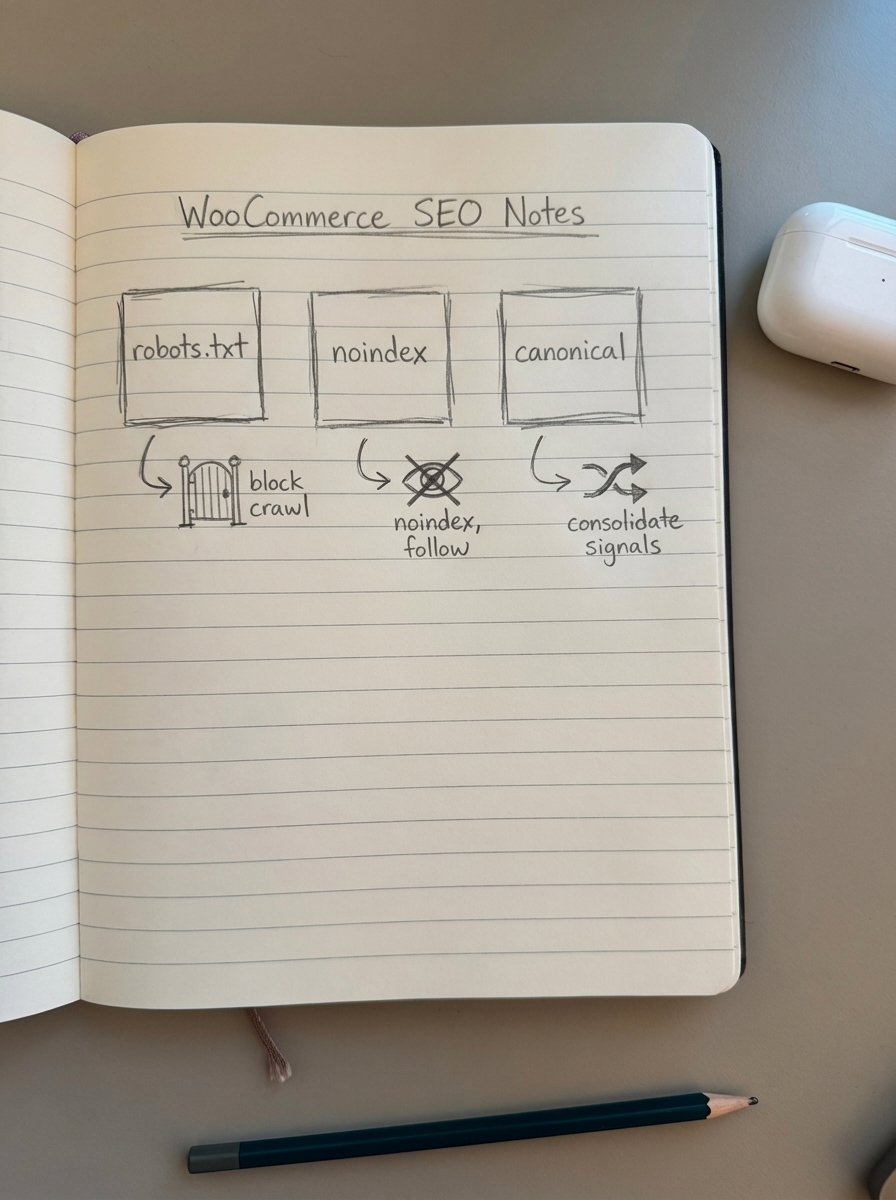 WooCommerce SEO Notes
robots.txt
noindex
canonical
block
crawl
noindex,
follow
consolidate
signals